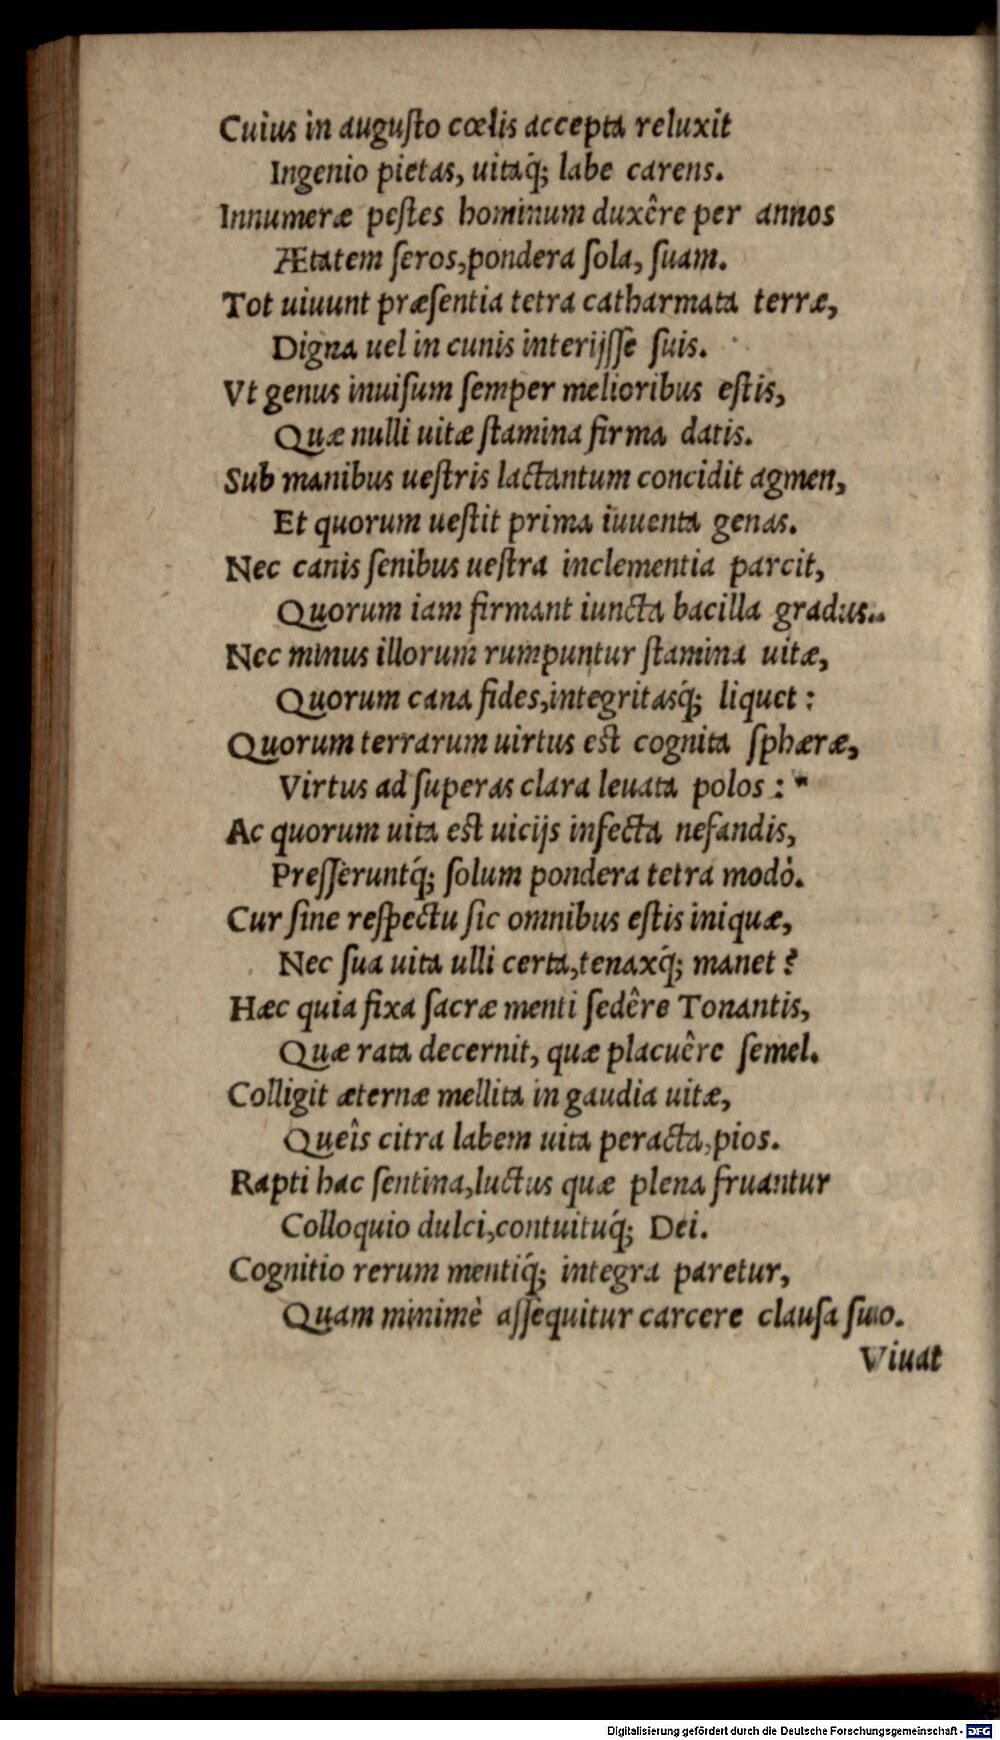 Cuius in auguſto cœlis accepta reluxit
Ingenio pietas, uitaq́; labe carens.
Innumeræ peſtes hominum duxêre per annos
Ætatem ſeros, pondera ſola, ſuam.
Tot uiuunt præſentia tetra catharmata terræ,
Digna uel in cunis interijſſe ſuis.
Vt genus inuiſum ſemper melioribus eſtis,
Quæ nulli uitæ ſtamina firma datis.
Sub manibus ueſtris lactantum concidit agmen,
Et quorum ueſtit prima iuuenta genas.
Nec canis ſenibus ueſtra inclementia parcit,
Quorum iam firmant iuncta bacilla gradus.
Nec minus illorum rumpuntur ſtamina uitæ,
Quorum cana fides, integritasq́; liquet:
Quorum terrarum uirtus eſt cognita ſphæræ,
Virtus ad ſuperas clara leuata polos:
Ac quorum uita eſt uicijs infecta nefandis,
Preſſeruntq́; ſolum pondera tetra modò.
Cur ſine reſpectu ſic omnibus eſtis iniquæ,
Nec ſua uita ulli certa, tenaxq́; manet?
Hæc quia fixa ſacræ menti ſedêre Tonantis,
Quæ rata decernit, quæ placuêre ſemel.
Colligit æternæ mellita in gaudia uitæ,
Queîs citra labem uita peracta, pios.
Rapti hac ſentina, luctus quæ plena fruantur
Colloquio dulci, contuituq́; Dei.
Cognitio rerum mentiq́; integra paretur,
Quam minimè aſſequitur carcere clauſa ſuo.
Viuat
Digitalisierung gefördert durch die Deutsche Forschungsgemeinschaft - DFG